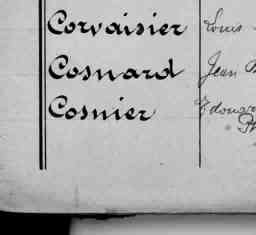 Corvaisier Louis
Cosnard Jean
Cosnier Edouar